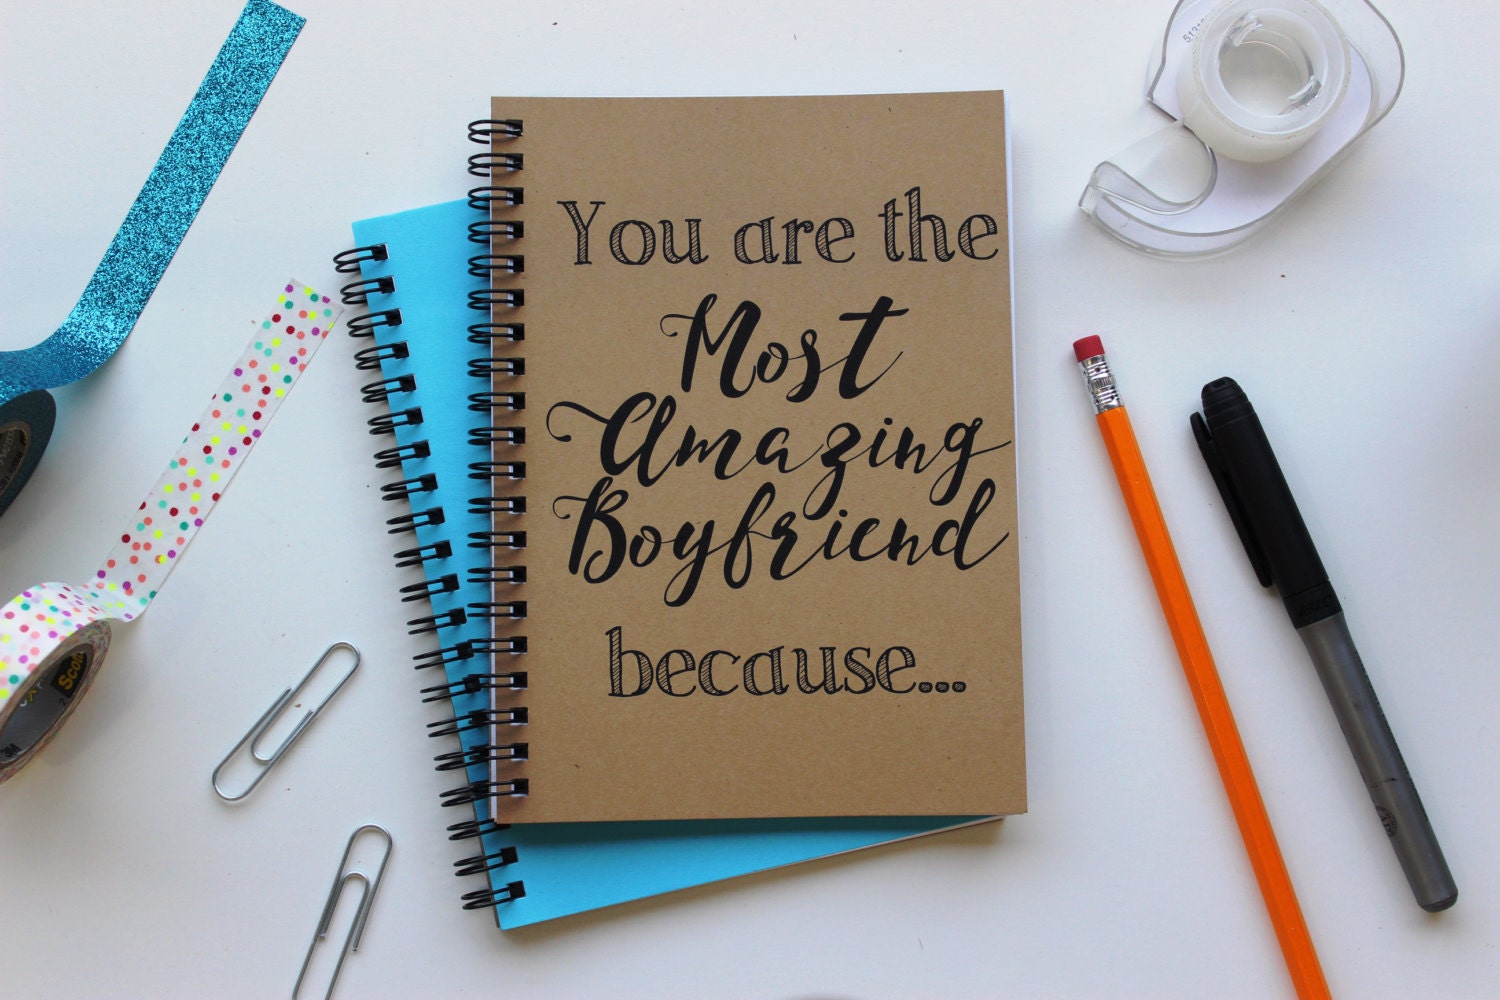 You are the
Most
Amazing
Boyfriend
because...
Scotch
3M
BIC